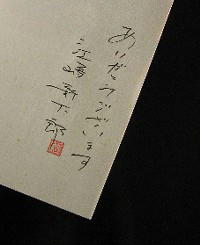 ありがとうございます
江崎新太郎